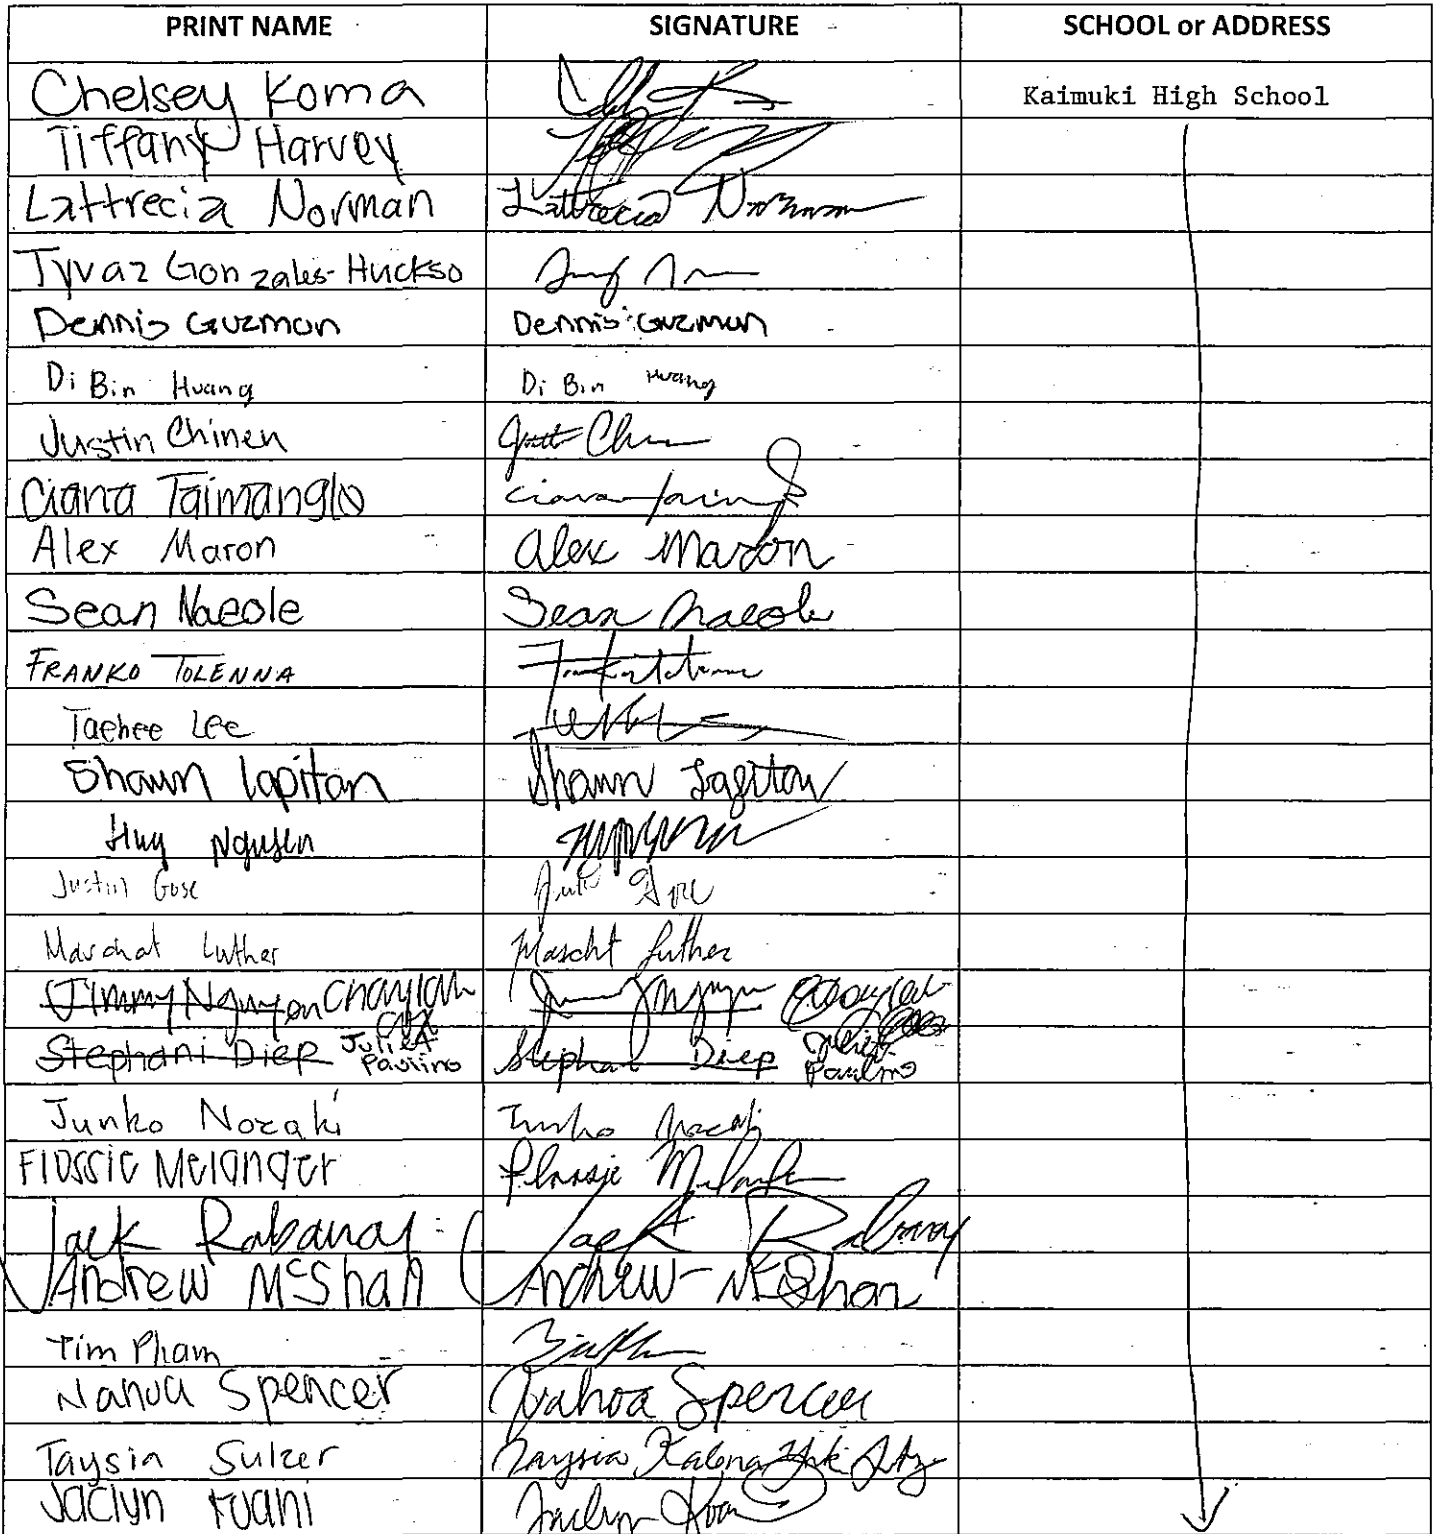 PRINT NAME SIGNATURE SCHOOL or ADDRESS
Chelsey Koma Kaimuki High School
Tiffany Harvey
Lattrecia Norman Lattrecia Norman
Tyvaz Gonzales-Huckso
Dennis Guzman Dennis Guzman
Di Bin Huang Di Bin Huang
Justin Chinen
Ciana Taimanglo
Alex Maron Alex Maron
Sean Naeole Sean Naeole
FRANKO TOLENNA
Taehee Lee
Shawn Lapitan Shawn Lapitan
Huy Nguyen
Justin Gose
Marchat Luther Luther
Jimmy Nguyen Chaylah
Stephani Diep Juliet Paulino Stephani Diep Juliet Paulino
Junko Nozaki Junko Nozaki
Flossie Melander Flossie
Jack Rabanal Jack
Andrew McShan Andrew McShan
Tim Pham
Nahoa Spencer Nahoa Spencer
Taysia Sulzer Taysia
Jaclyn Jaclyn